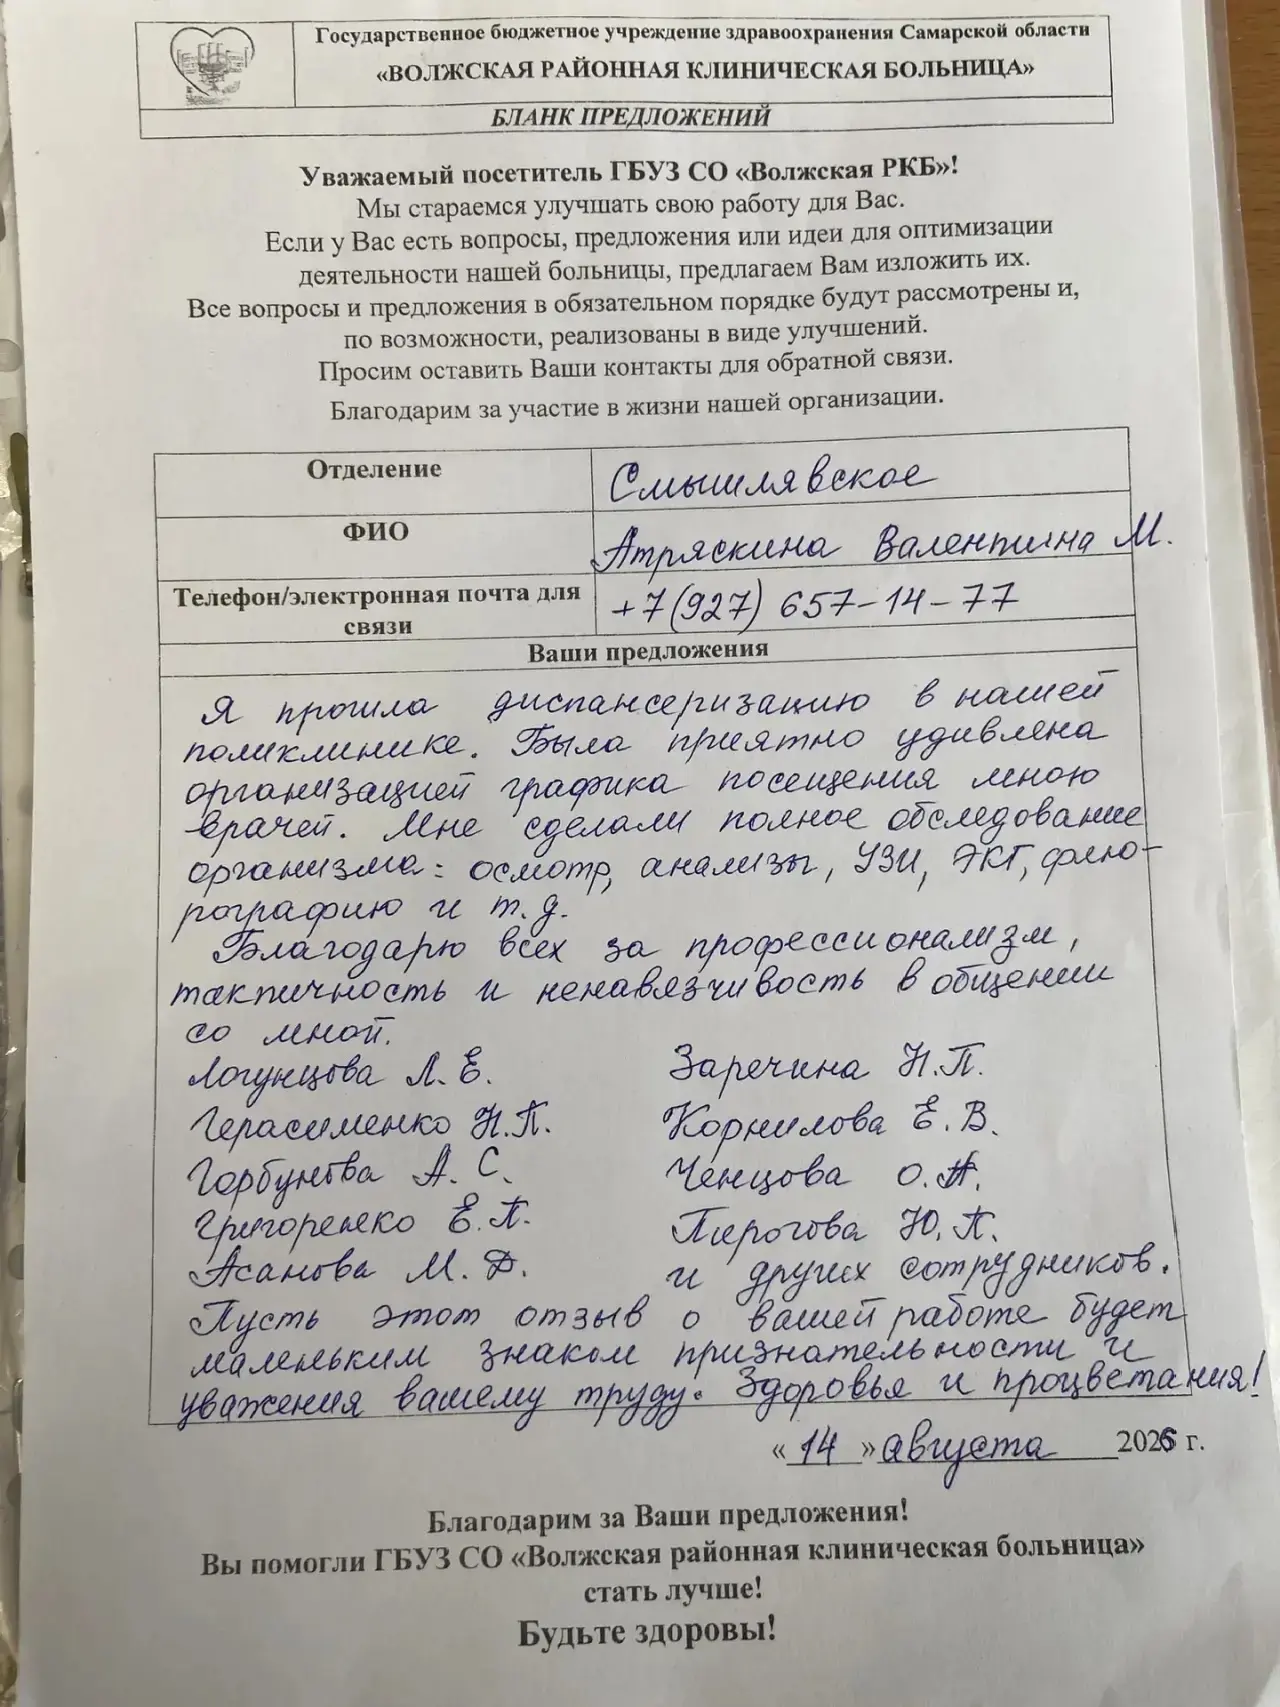 Государственное бюджетное учреждение здравоохранения Самарской области
«ВОЛЖСКАЯ РАЙОННАЯ КЛИНИЧЕСКАЯ БОЛЬНИЦА»
БЛАНК ПРЕДЛОЖЕНИЙ
Уважаемый посетитель ГБУЗ СО «Волжская РКБ»!
Мы стараемся улучшать свою работу для Вас.
Если у Вас есть вопросы, предложения или идеи для оптимизации
деятельности нашей больницы, предлагаем Вам изложить их.
Все вопросы и предложения в обязательном порядке будут рассмотрены и,
по возможности, реализованы в виде улучшений.
Просим оставить Ваши контакты для обратной связи.
Благодарим за участие в жизни нашей организации.
Отделение Смышлявское
ФИО Атряскина Валентина М.
Телефон/электронная почта для связи +7(927) 657-14-77
Ваши предложения
Я прошла диспансеризацию в нашей
поликлинике. Была приятно удивлена
организацией графика посещения мною
врачей. Мне сделали полное обследование
организма: осмотр, анализы, УЗИ, ЭКГ, флюо-
рографию и т.д.
Благодарю всех за профессионализм,
тактичность и ненавязчивость в общении
со мной.
Логунцова Л.Е. Заречина Н.П.
Герасименко Н.П. Корнилова Е.В.
Горбунова А.С. Ченцова О.А.
Григоренко Е.П. Пирогова Ю.П.
Асанова М.Д. и других сотрудников.
Пусть этот отзыв о вашей работе будет
маленьким знаком признательности и
уважения вашему труду. Здоровья и процветания!
«14» августа 202 г.
Благодарим за Ваши предложения!
Вы помогли ГБУЗ СО «Волжская районная клиническая больница»
стать лучше!
Будьте здоровы!